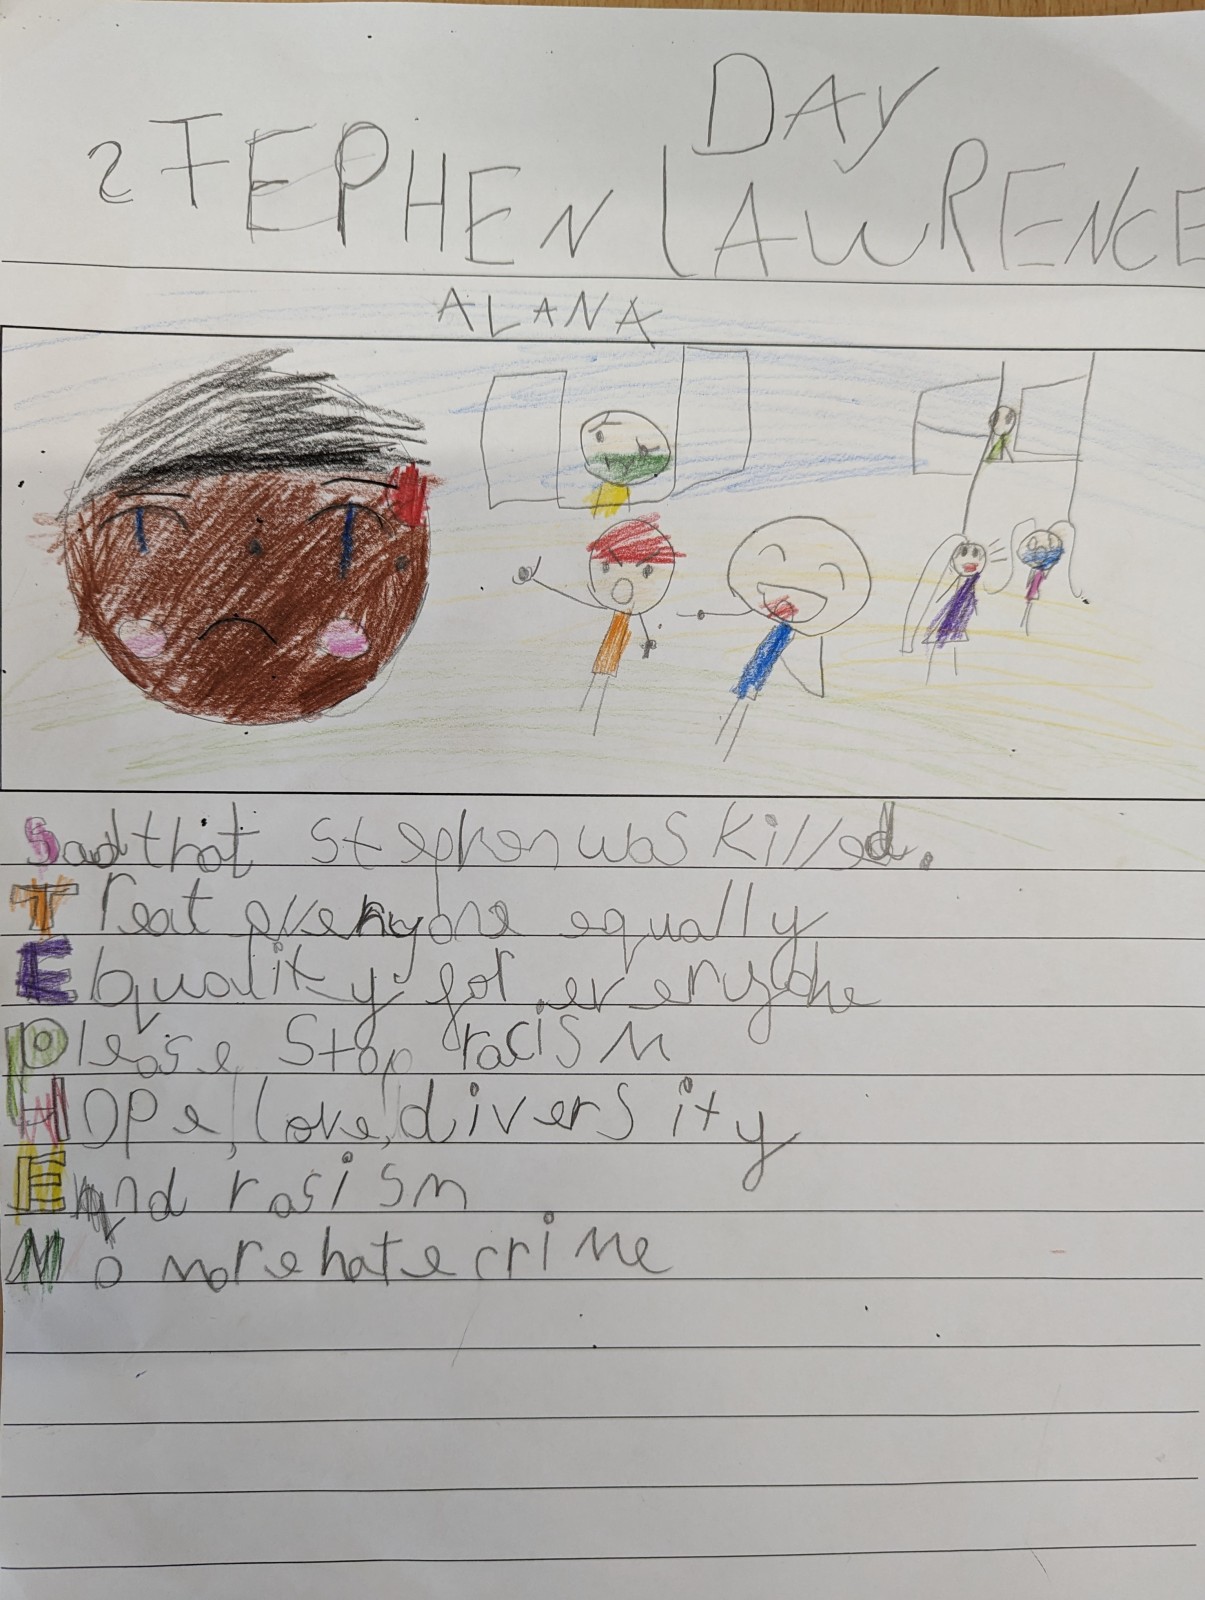 DAY
STEPHEN LAWRENCE
ALANA
Sad that Stephen was killed.
Treat everyone equally
Equality for everyone
Please stop racism
Hope, love, diversity
End rasism
No more hate crime